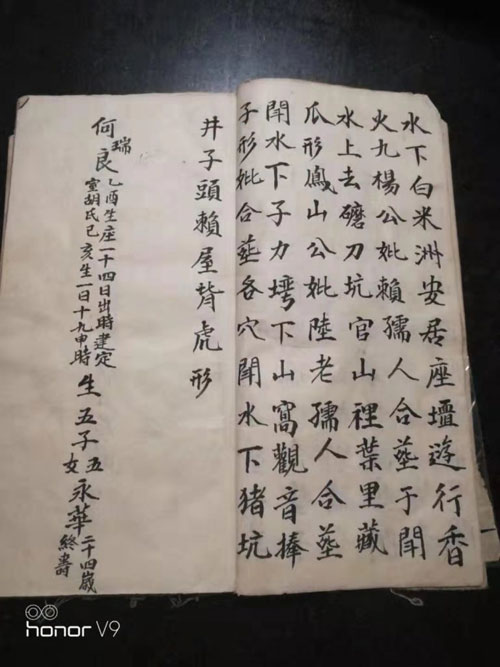 水下白米洲安居座壇遊行香
火九楊公妣賴孺人合塟于開
水上去礳刀坑官山裡葉里藏
瓜形鳳山公妣陸老孺人合塟
開水下子力塆下山窩觀音捧
子形妣合塟各穴開水下猪坑
井子頭賴屋背虎形
何瑞良
乙酉生座一十四日出時建定
室胡氏己亥生一日十九申時
生五子五女永華二十四歲終壽
honor V9